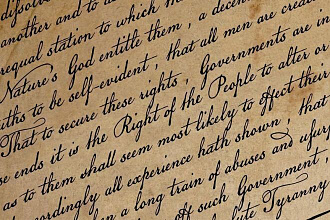 dissolve
another and to a
equal station to which th
Nature's God entitle them, a decen
uths to be self-evident, that all men are crea
That to secure these rights, Governments are in
se ends it is the Right of the People to alter or
as to them shall seem most likely to effect their
cordingly all experience hath shown, that
en a long train of abuses and usur
off such Government,
ute Tyranny